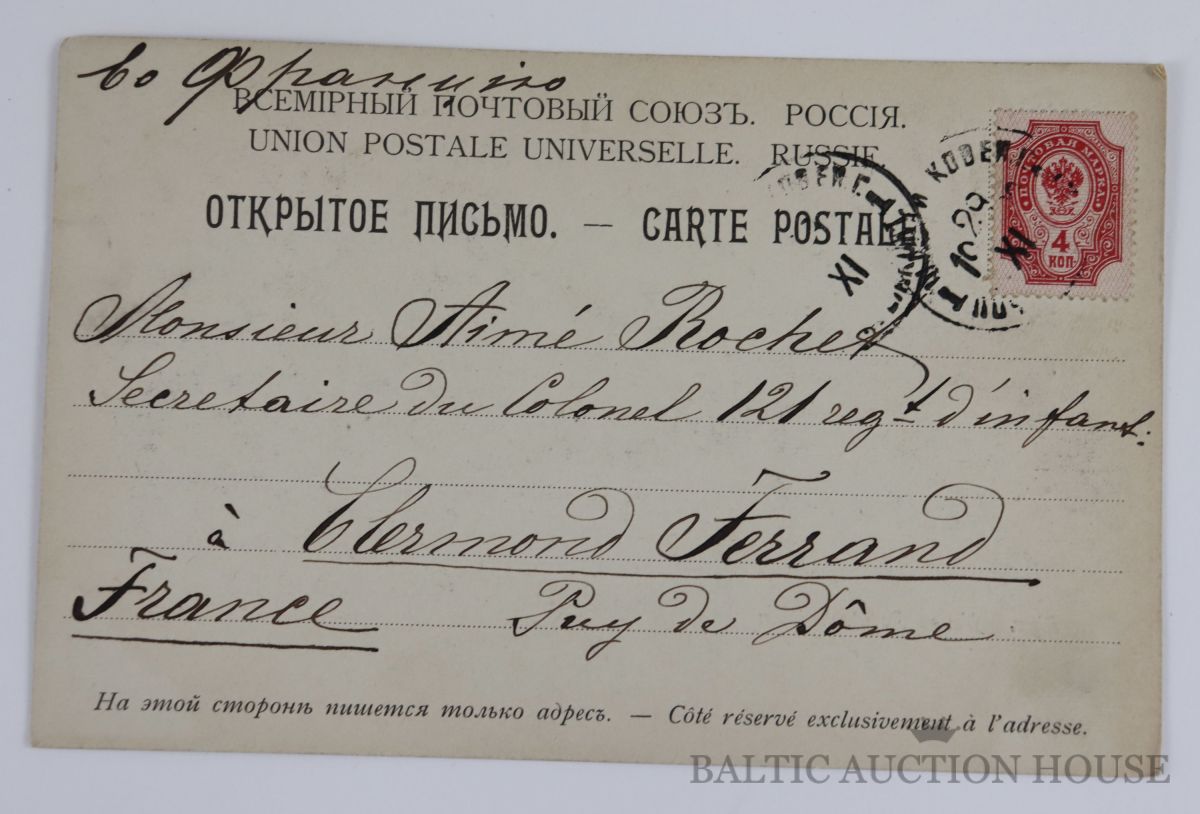 во Францию
ВСЕМІРНЫЙ ПОЧТОВЫЙ СОЮЗЪ. РОССІЯ.
UNION POSTALE UNIVERSELLE. RUSSIE.
ОТКРЫТОЕ ПИСЬМО. — CARTE POSTALE
ПОЧТОВАЯ МАРКА
4
КОП
29
XI
10
XI
Monsieur Aimé Rochet
Secretaire du Colonel 121 regt d'infant.
à Clermond Ferrand
France Puy de Dôme
На этой сторонѣ пишется только адресъ. — Côté réservé exclusivement à l'adresse.
BALTIC AUCTION HOUSE